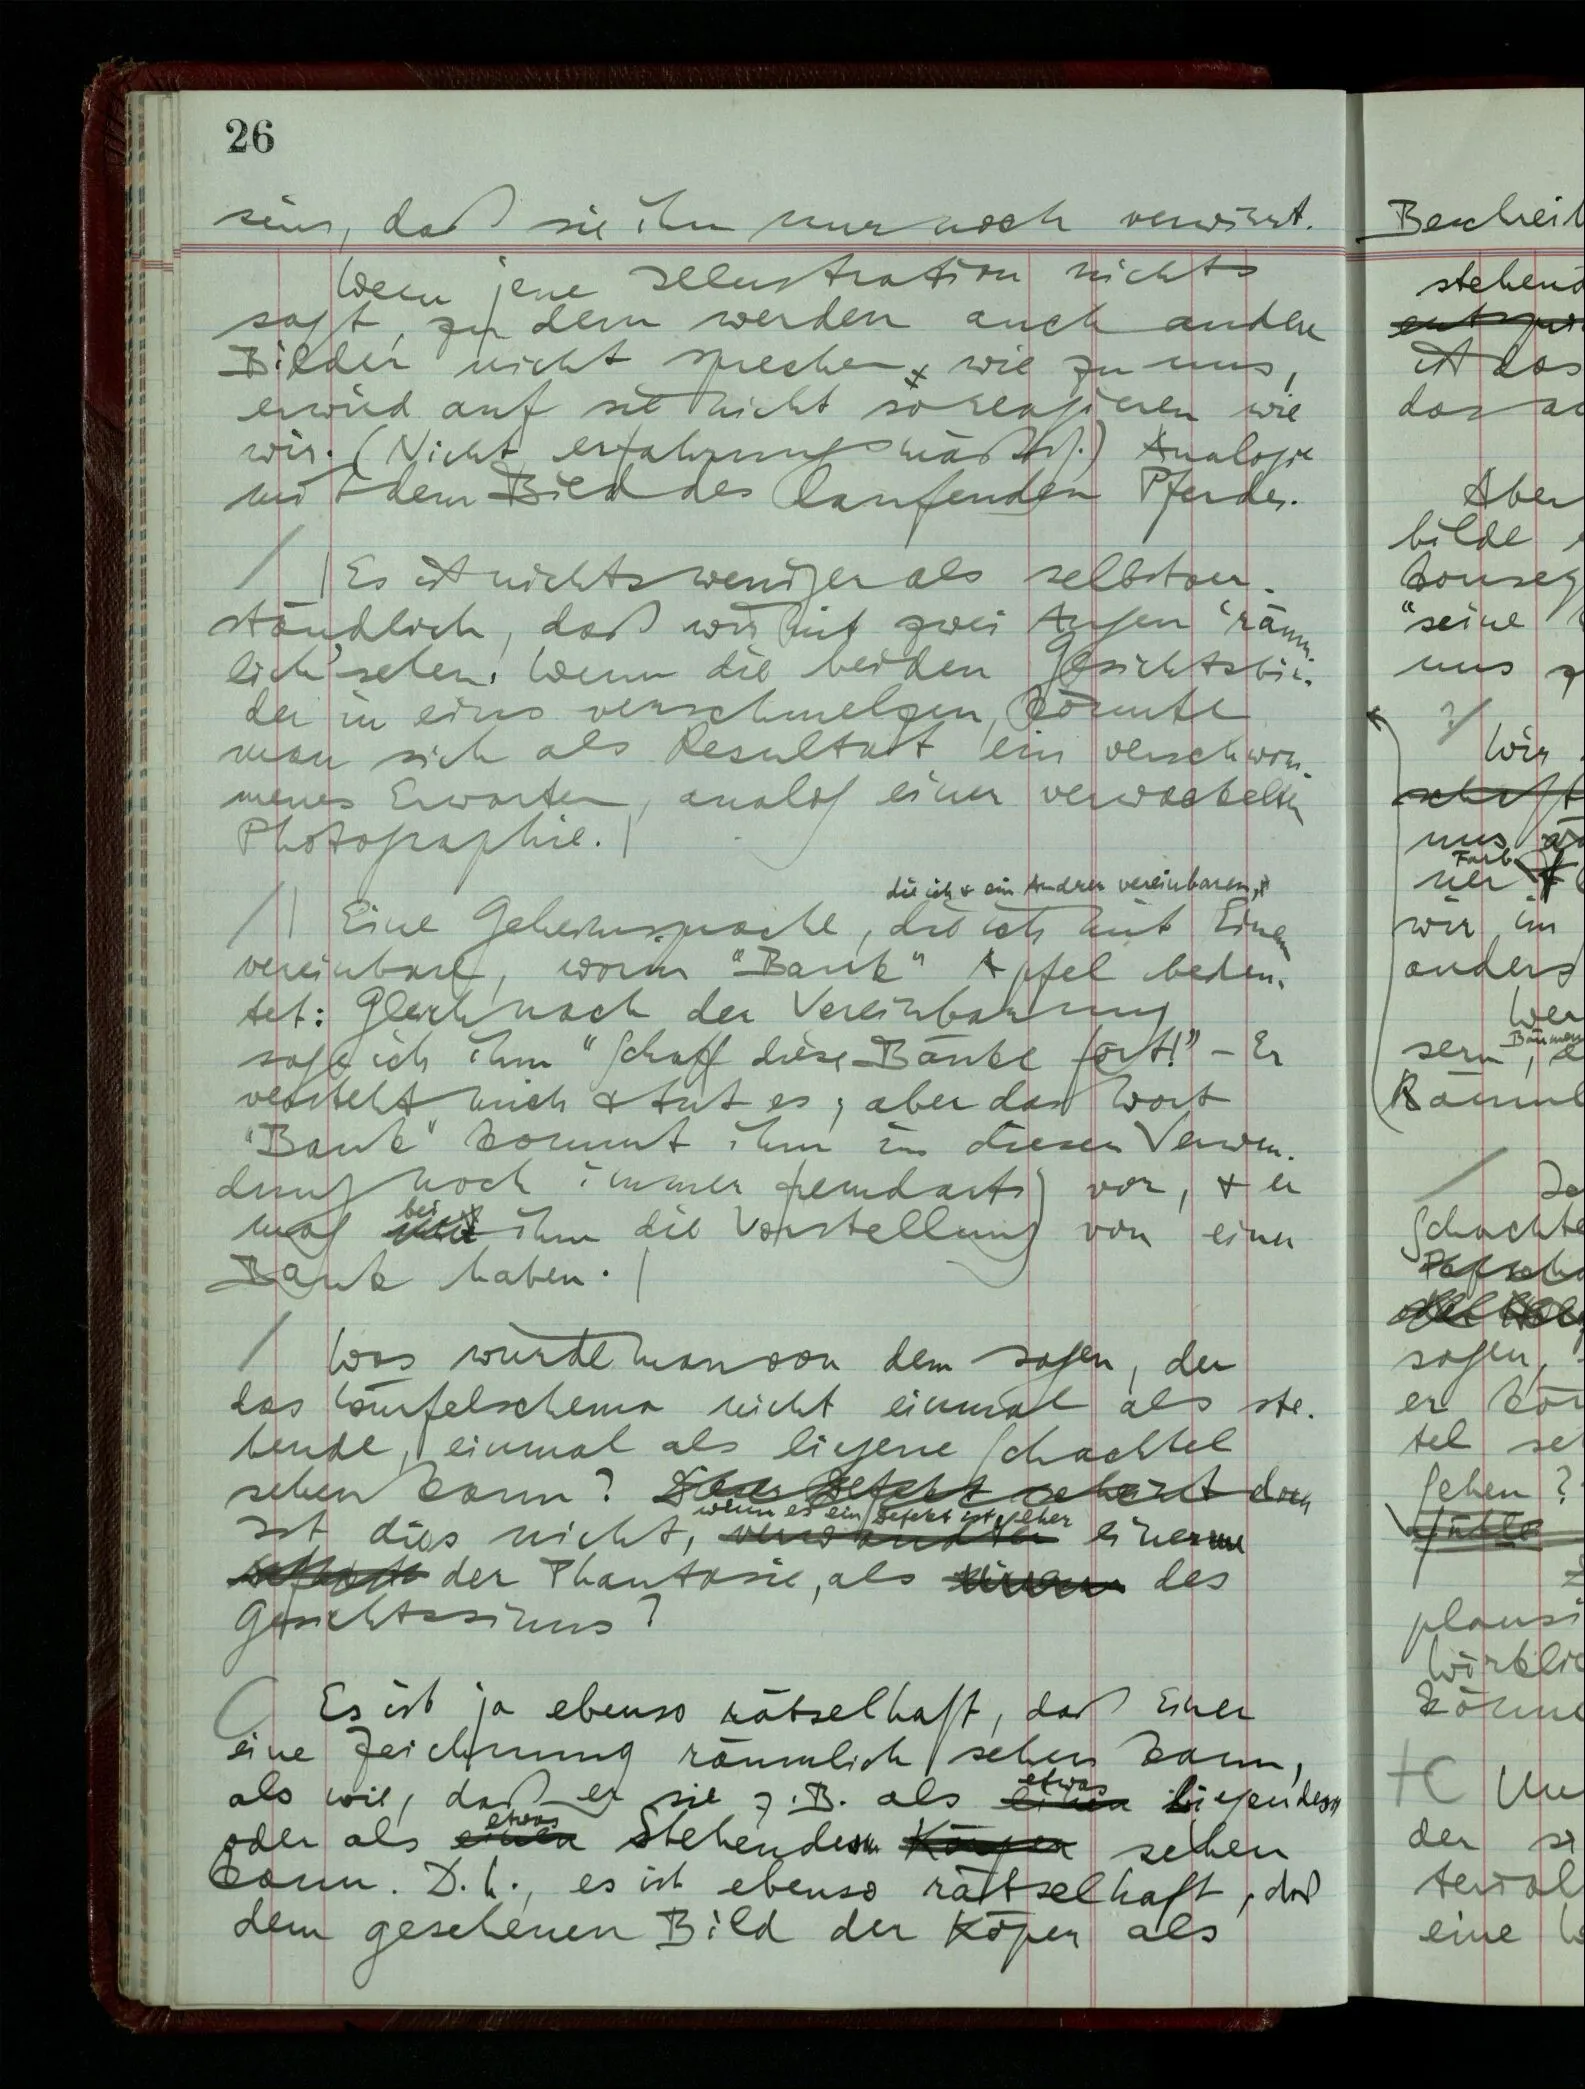 26
sein, daß sie ihn nur noch verwirrt.
Wem jene Illustration nichts
sagt, zu dem werden auch andere
Bilder nicht sprechen wie zu uns,
er wird auf sie nicht so reagieren wie
wir. (Nicht erfahrungsmäßig.) Analogie
mit dem Bild des laufenden Pferdes.
/ | Es ist nichts weniger als selbstver-
ständlich, daß wir mit zwei Augen 'räum-
lich' sehen. Wenn die beiden Gesichtsbil-
der in eins verschmelzen, könnte
man sich als Resultat ein verschwom-
menes Erwarten, analog einer verwackelten
Photographie. |
die ich + ein Andrer vereinbaren,
/ | Eine Geheimsprache, die ich mit Einem
vereinbare, worin "Bank" Apfel bedeu-
tet: Gleich nach der Vereinbarung
sage ich ihm "Schaff diese Bänke fort!" – Er
versteht mich & tut es; aber das Wort
"Bank" kommt ihm in dieser Verwen-
dung noch immer fremdartig vor, + er
bei
mag mit ihm die Vorstellung von einer
Bank haben. |
/ Was würde man von dem sagen, der
das Würfelschema nicht einmal als ste-
hende, einmal als liegene Schachtel
sehen kann? Der Defekt scheint doch
wenn es ein Defekt ist, eher
Ist dies nicht, verwandter einer
der Phantasie, als des
Gesichtssinns?
C Es ist ja ebenso rätselhaft, daß Einer
eine Zeichnung räumlich sehen kann,
etwas
als wie, daß er sie z.B. als einen liegendes
etwas
oder als einen Stehendes Körper sehen
kann. D.h., es ist ebenso rätselhaft, daß
dem gesehenen Bild der Köper als
Beschreib
stehend
ist das
Aber
bilde
konseq
"seine
uns
?/
Wir
schaft
uns
Farb
ner
wir im
anders
Wer
sern,
Räuml
/
Schachte
sagen,
er kön
tel se
sehen?
fühle
plausi
wirklic
könne
+C
der
eine